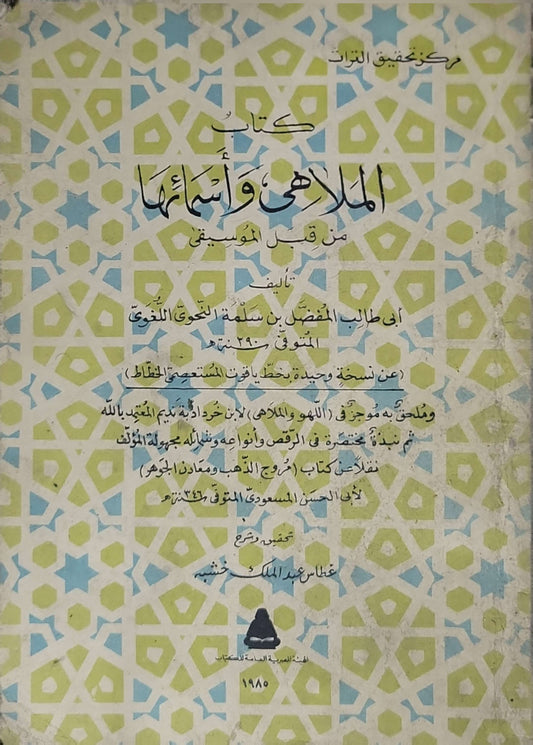 مركز تحقيق التراث
كتاب
الملاهى وأسمائها
من قبل الموسيقى
تأليف
أبى طالب المفضل بن سلمة النحوى اللغوى
المتوفى سنة ٢٩٠ هـ
(عن نسخة وحيدة بخط ياقوت المستعصمى الخطاط)
وملحق به موجز فى (اللهو والملاهى) لابن خرداذبة نديم المعتمد بالله
ثم نبذة مختصرة فى الرقص وأنواعه وشمائله مجهولة المؤلف
نقلا عن كتاب (مروج الذهب ومعادن الجوهر)
لأبى الحسن المسعودى المتوفى سنة ٣٤٦ هـ
تحقيق وشرح
غطاس عبد الملك خشبه
الهيئة المصرية العامة للكتاب
١٩٨٥